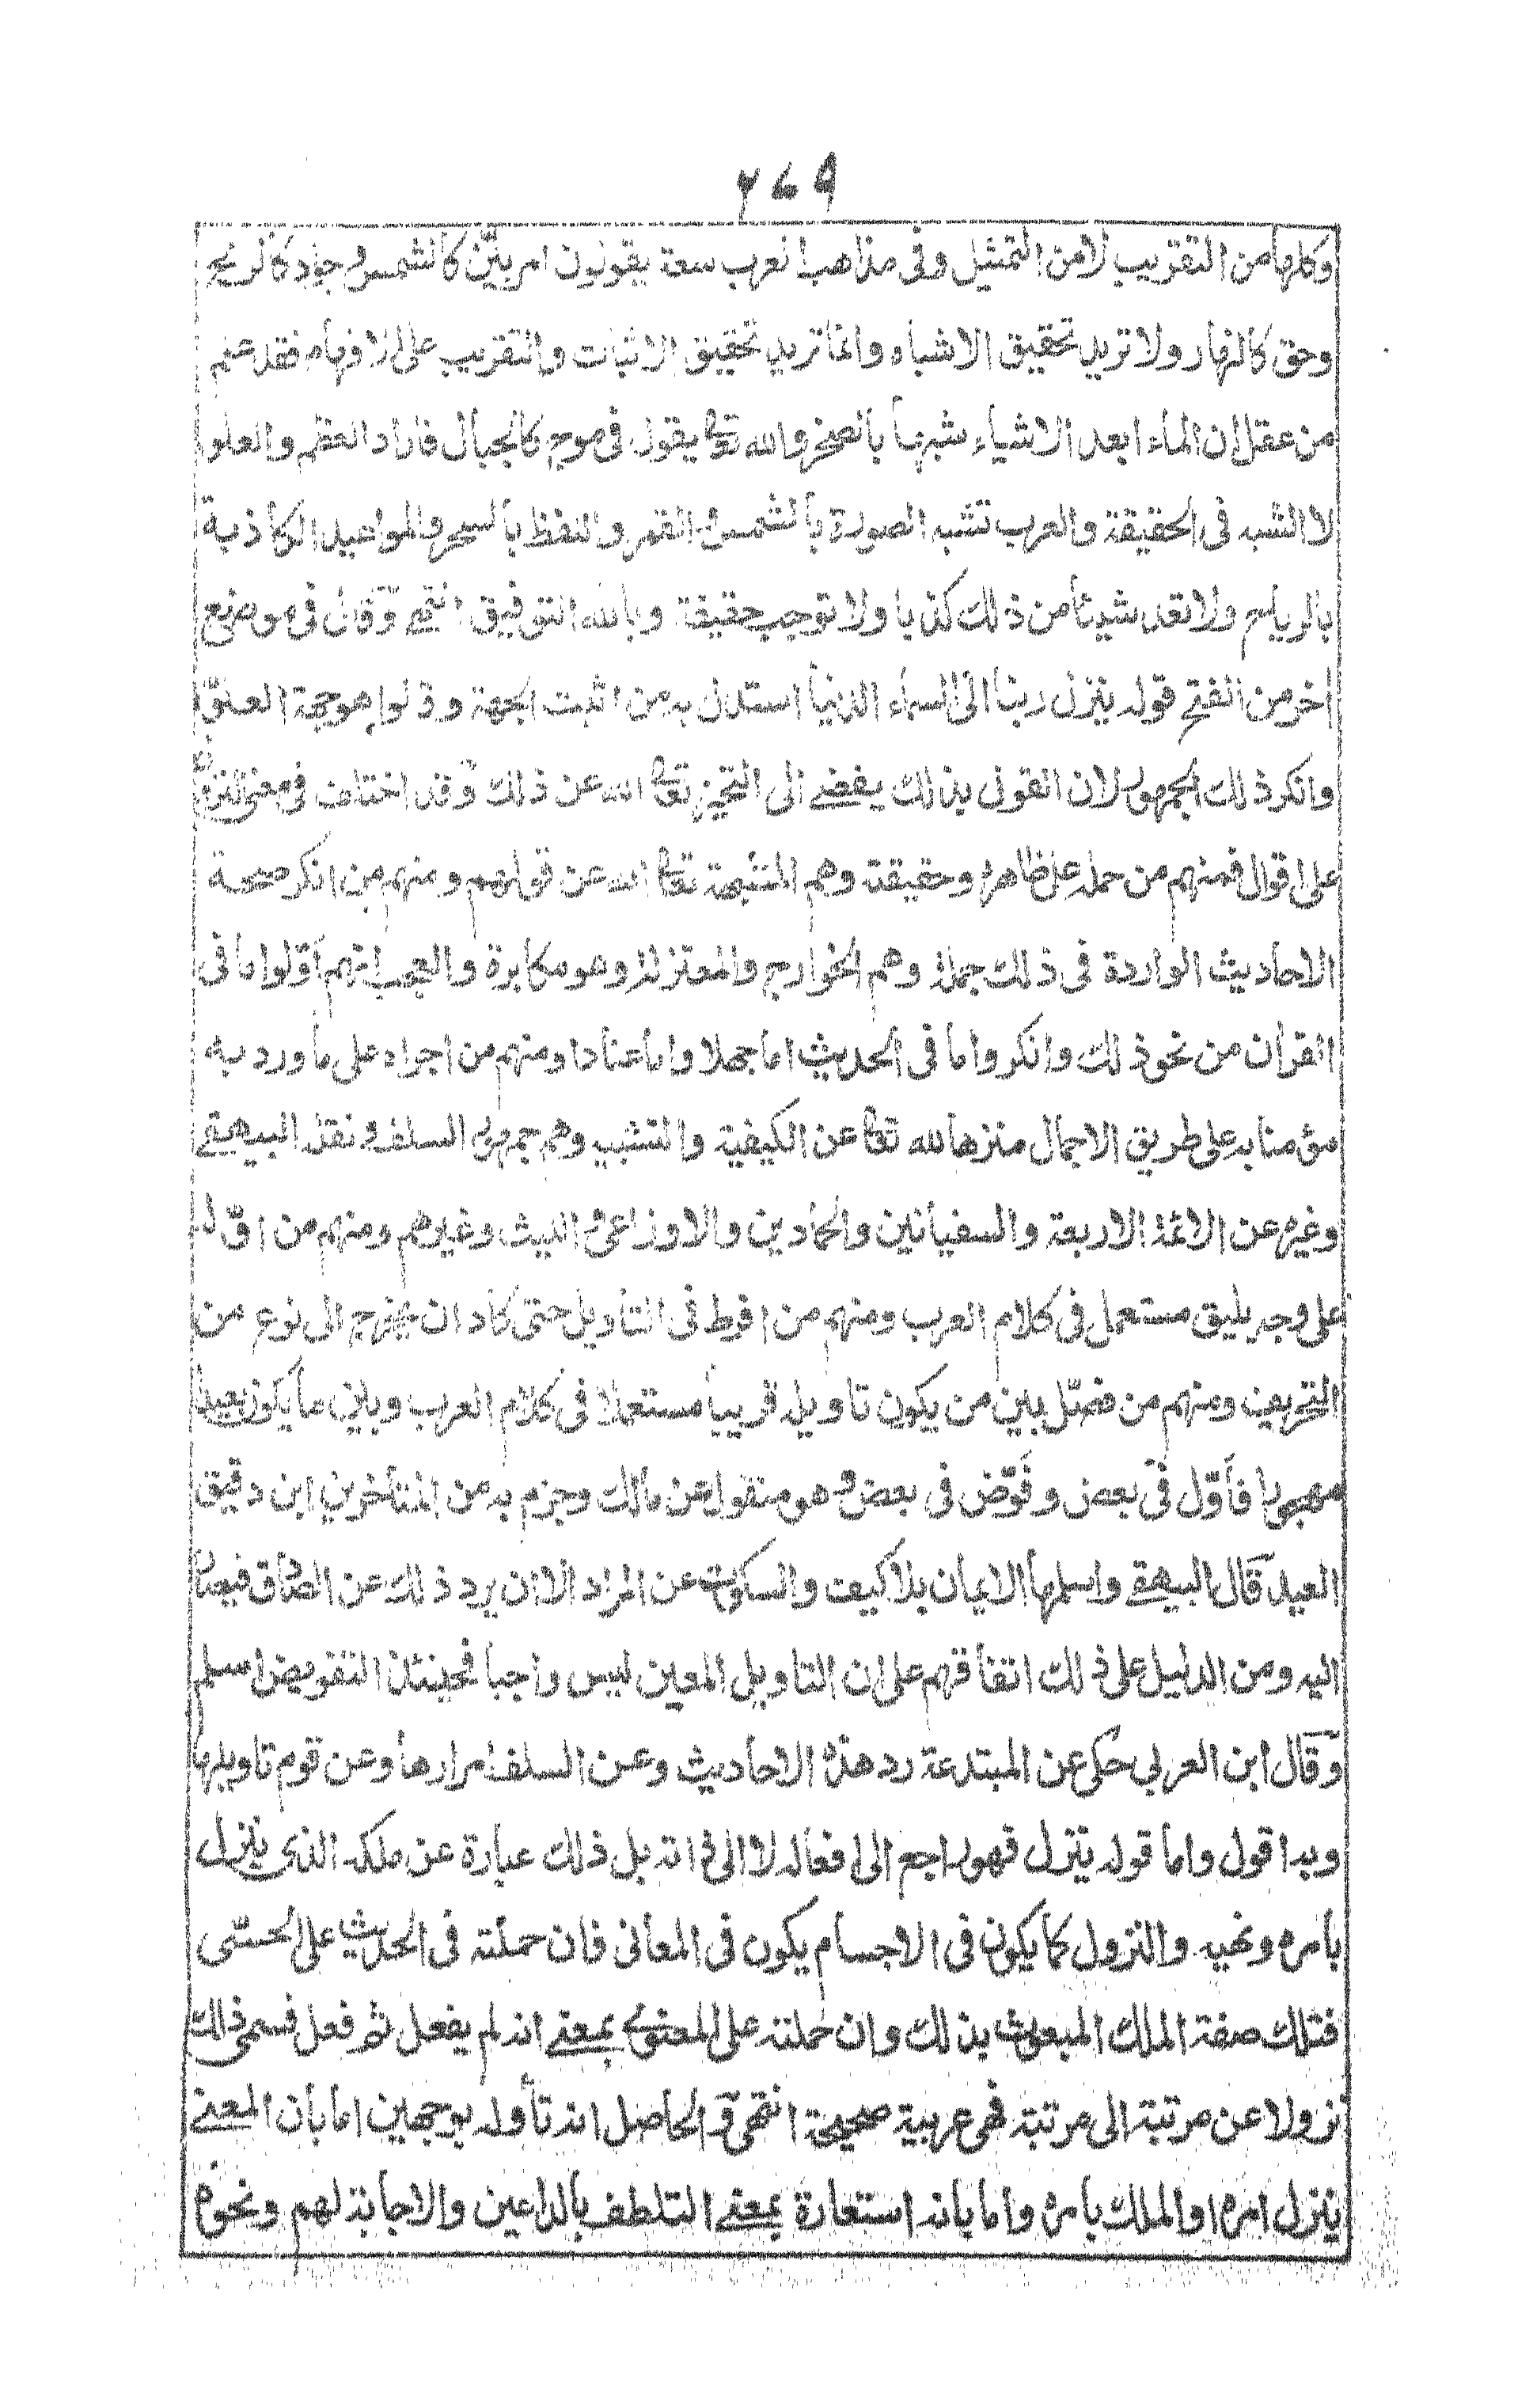 ٢٤٩
وكلها من التقريب لا من التمثيل وفى مذاهب العرب سعة يقولون امر بيّن كالشمس وجواد كالريح
وحق كالنهار ولا تريد تحقيق الاشباه وانما تريد تحقيق الاثبات والتقريب على الافهام فقد علم
من عقل ان الماء ابعد الاشياء شبها بالصخر والله تعالى يقول فى موج كالجبال فاراد العظم والعلو
لا الشبه فى الحقيقة والعرب تشبه الصورة بالشمس والقمر واللفظ بالسحر والمواعيد الكاذبة
بالرياح ولا تعد شيئا من ذلك كذبا ولا توجب حقيقة وبالله التوفيق انتهى وقال فى موضع
اخر من الفتح قوله ينزل ربنا الى السماء الدنيا استدل به من اثبت الجهة وقالوا هو جهة العلوّ
وانكر ذلك الجمهور لان القول بذلك يفضے الى التحيز تعالى الله عن ذلك وقد اختلف فى معنى النزول
على اقوال فمنهم من حمله على ظاهره وحقيقته وهم المشبهة تعالى الله عن قولهم ومنهم من انكر صحة
الاحاديث الواردة فى ذلك جملة وهم الخوارج والمعتزلة وهو مكابرة والعجب انهم اوّلوا ما فى
القرآن من نحو ذلك وانكروا ما فى الحديث اما جهلا واما عنادا ومنهم من اجراه على ما ورد به
مؤمنا به على طريق الاجمال منزها لله تعالى عن الكيفية والتشبيه وهم جمهور السلف ونقله البيهقے
وغيره عن الائمة الاربعة والسفيانين والحمادين والاوزاعى والليث وغيرهم ومنهم من اوّله
على وجه يليق مستعمل فى كلام العرب ومنهم من افرط فى التاويل حتى كاد ان يخرج الى نوع من
التحريف ومنهم من فصّل بين من يكون تاويله قريبا مستعملا فى كلام العرب وبين ما يكون بعيدا
مهجورا فاوّل فى بعض وفوّض فى بعض وهو منقول عن مالك وجزم به من المتأخرين ابن دقيق
العيد قال البيهقے واسلمها الايمان بلا كيف والسكوت عن المراد الا ان يرد ذلك عن الصادق فيصار
اليه ومن الدليل على ذلك اتفاقهم على ان التاويل المعين ليس واجبا فحينئذ التفويض اسلم
وقال ابن العربي حكى عن المبتدعة رد هذه الاحاديث وعن السلف امرارها وعن قوم تاويلها
وبه اقول واما قوله ينزل فهو راجع الى افعاله لا الى ذاته بل ذلك عبارة عن ملكه الذى ينزل
بامره ونهيه والنزول كما يكون فى الاجسام يكون فى المعانى فان حملته فى الحديث على الحسّى
فتلك صفة الملك المبعوث بذلك وان حملته على المعنوى بمعنے انه لم يفعل ثم فعل فسمى ذلك
نزولا عن مرتبة الى مرتبة فهى عربية صحيحة انتهى والحاصل انه تأوله بوجهين اما بان المعنے
ينزل امره او الملك بامره واما بانه استعارة بمعنے التلطف بالداعين والاجابة لهم ونحوه